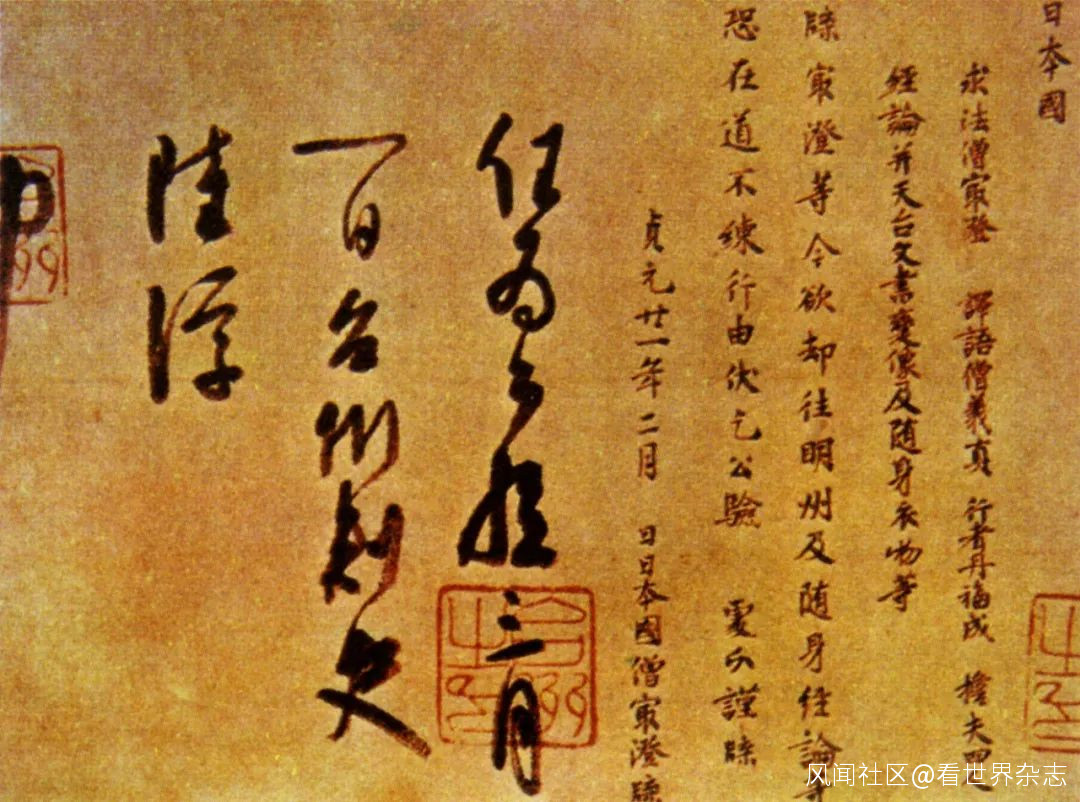 日本國
求法僧寂澄 譯語僧義真 行者丹福成 檐夫四
經論并天台文書變像及随身衣物等
牒寂澄等今欲却往明州及随身經論等
恐在道不練行由伏乞公驗 處分謹牒
貞元廿一年二月 日日本國僧寂澄牒
任為公驗三月
一日台州刺史
陸淳
印
风闻社区@看世界杂志